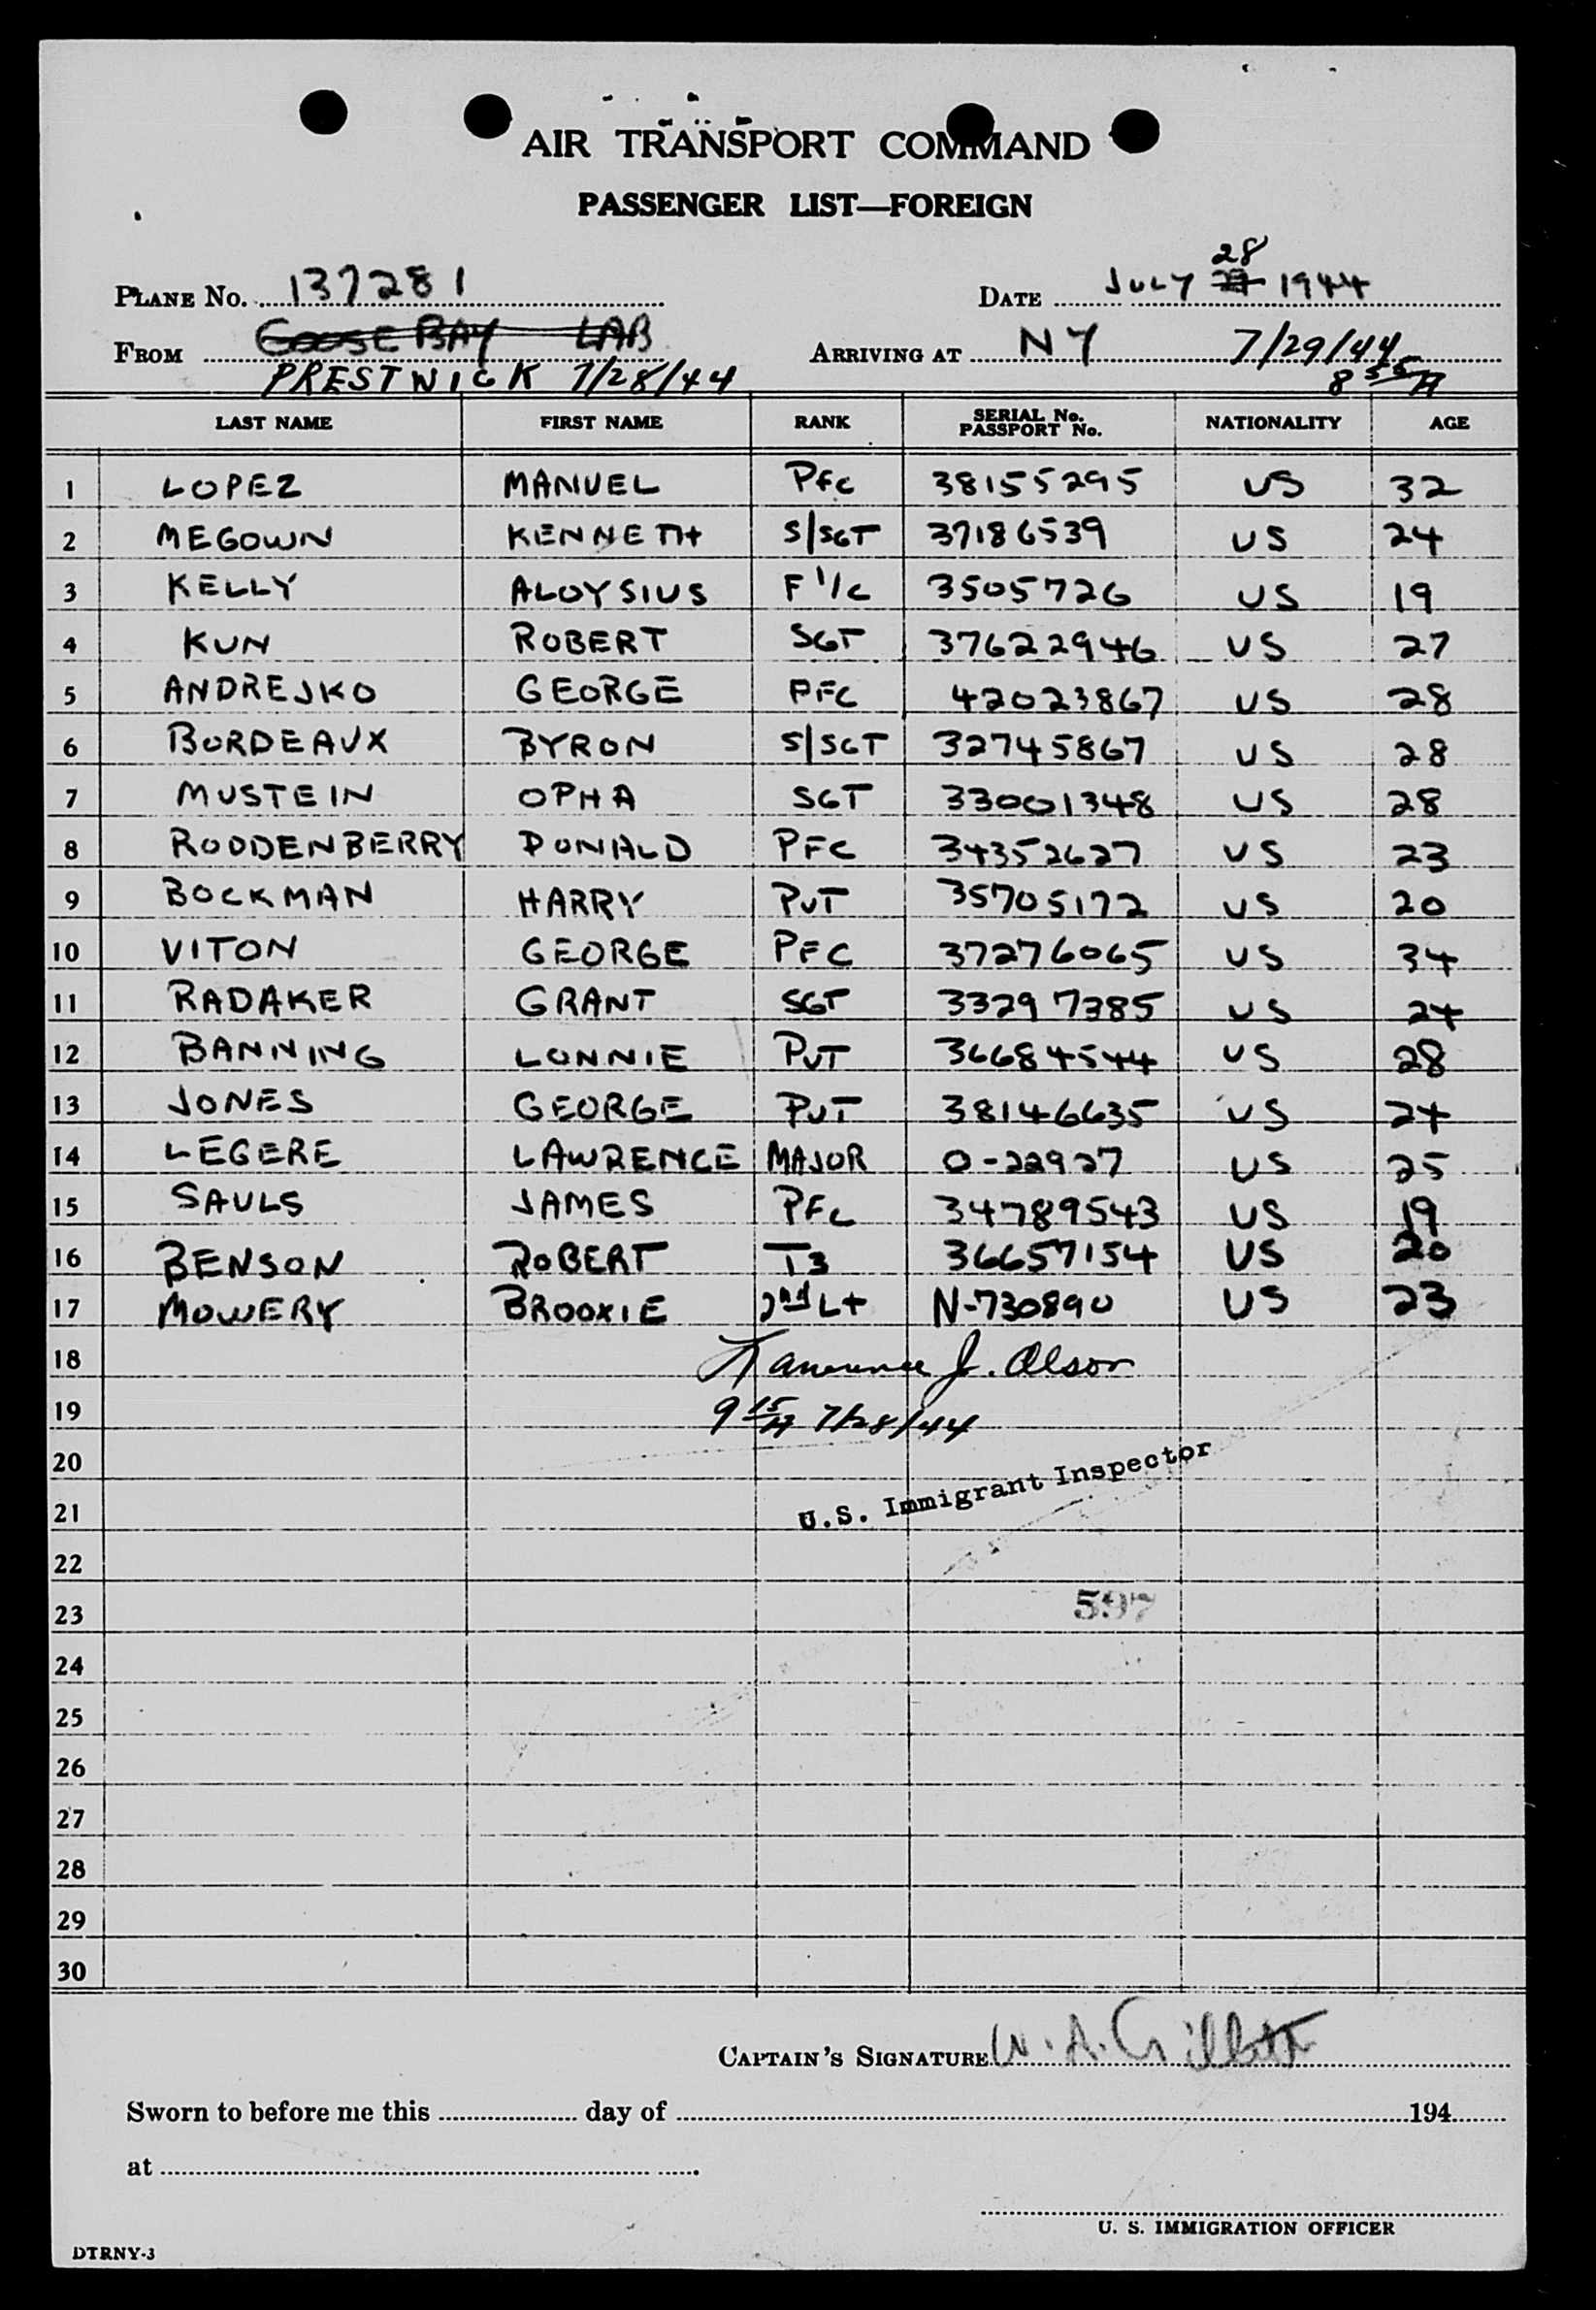 AIR TRANSPORT COMMAND
PASSENGER LIST—FOREIGN
PLANE No. 137281
28
DATE JULY 1944
FROM GOOSE BAY LAB
ARRIVING AT NY 7/29/44
PRESTWICK 7/28/44
8 55/A
LAST NAME FIRST NAME RANK SERIAL No. PASSPORT No. NATIONALITY AGE
1 LOPEZ MANUEL Pfc 38155295 US 32
2 MEGOWN KENNETH S/SGT 37186539 US 24
3 KELLY ALOYSIUS F 1/C 3505726 US 19
4 KUN ROBERT SGT 37622946 US 27
5 ANDREJKO GEORGE PFC 42023867 US 28
6 BORDEAUX BYRON S/SGT 32745867 US 28
7 MUSTEIN OPHA SGT 33001348 US 28
8 RODDENBERRY DONALD PFC 34352627 US 23
9 BOCKMAN HARRY PVT 35705172 US 20
10 VITON GEORGE PFC 37276065 US 34
11 RADAKER GRANT SGT 33297385 US 24
12 BANNING LONNIE PVT 36684544 US 28
13 JONES GEORGE PVT 38146635 US 24
14 LEGERE LAWRENCE MAJOR O-22927 US 25
15 SAULS JAMES PFC 34789543 US 19
16 BENSON ROBERT T3 36657154 US 20
17 MOWERY BROOXIE 2nd Lt N-730890 US 23
18 J. Olson
19 9 15/A 7/28/44
20
21 U.S. Immigrant Inspector
22
23 597
24
25
26
27
28
29
30
CAPTAIN'S SIGNATURE W. A.
Sworn to before me this day of 194
at
U. S. IMMIGRATION OFFICER
DTRNY-3